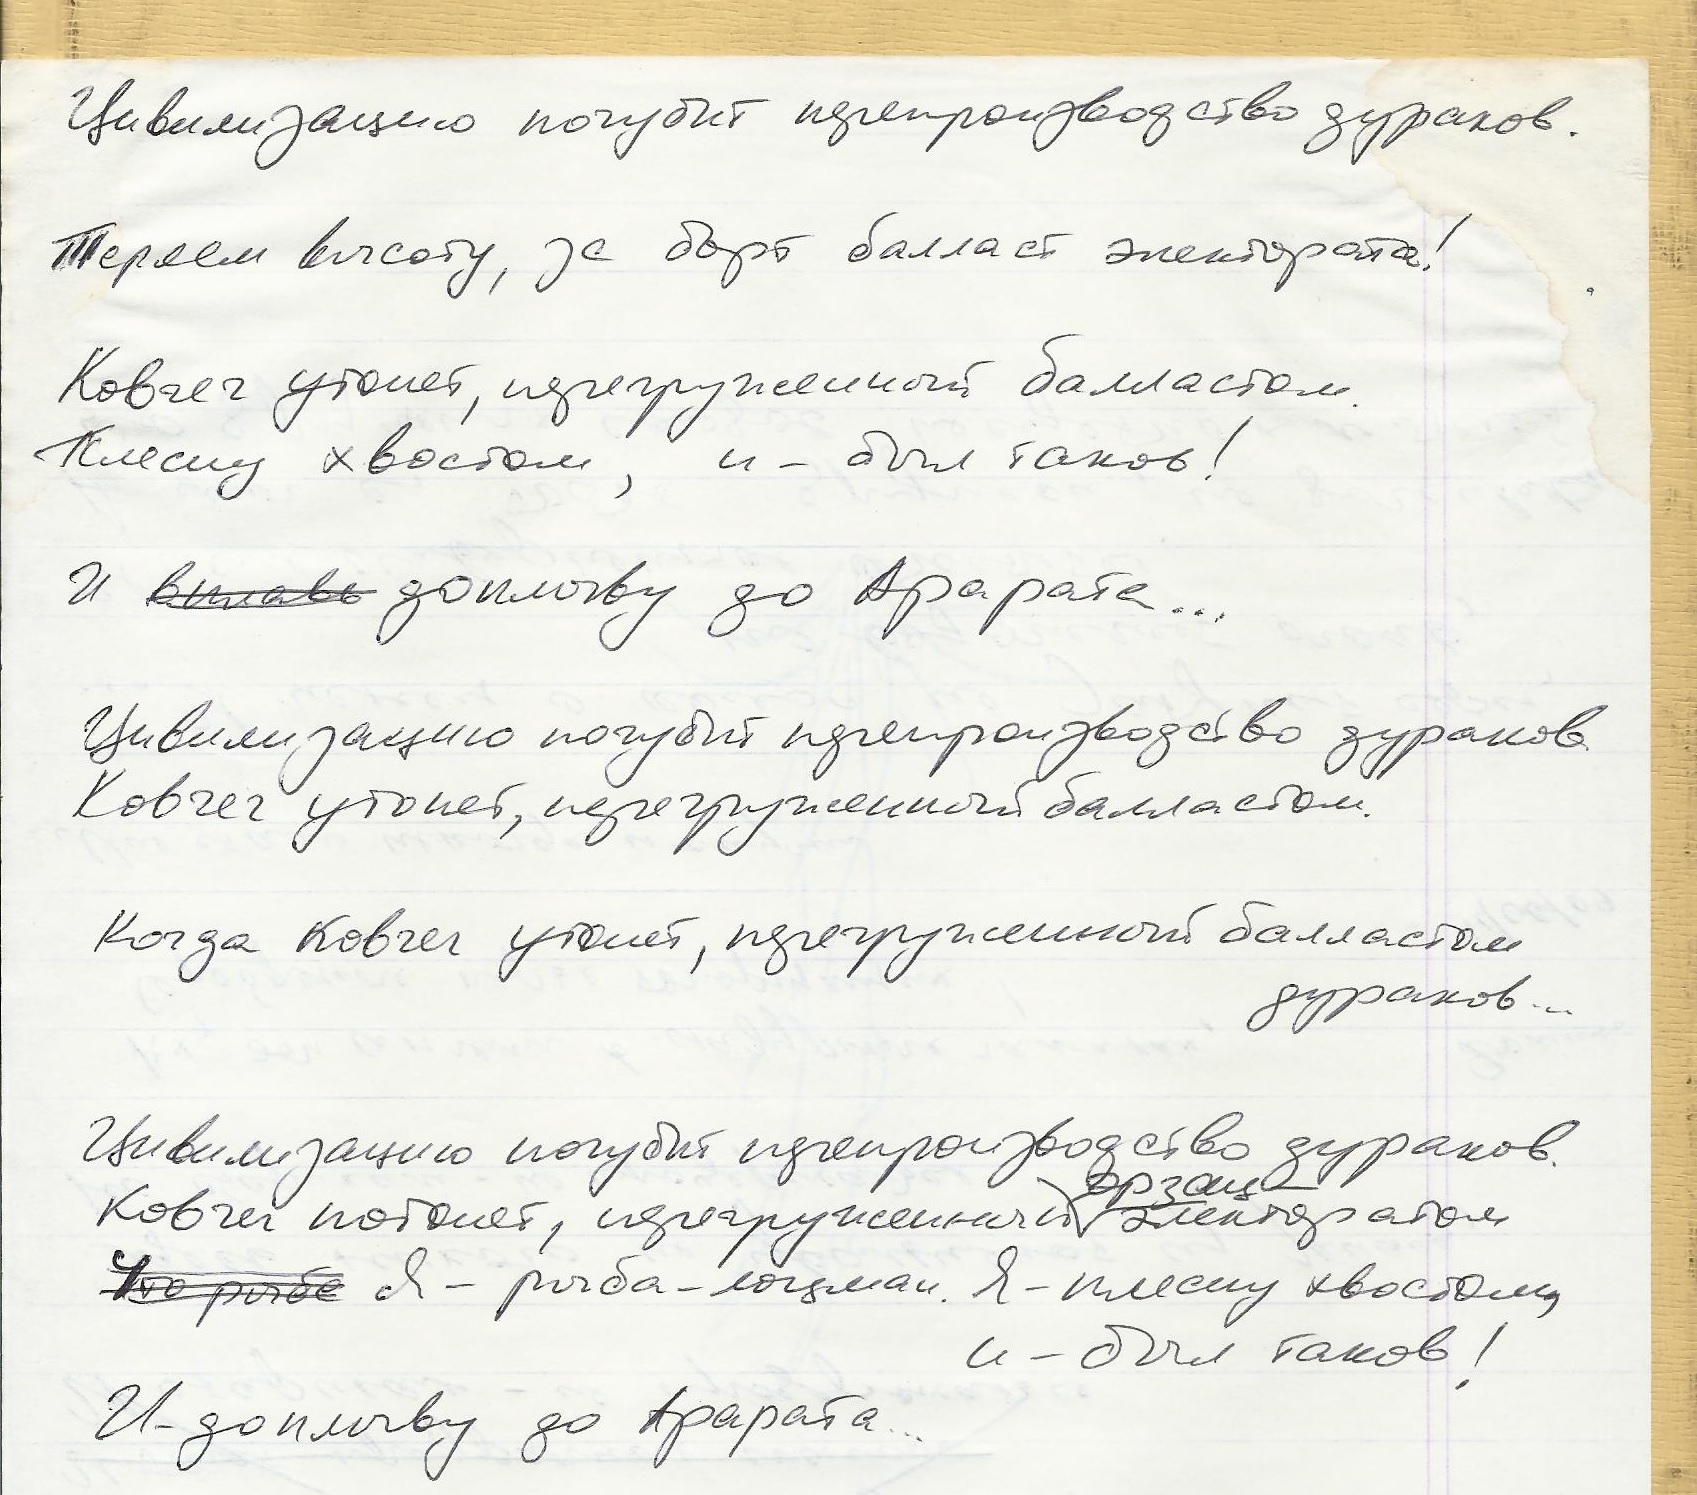 Цивилизацию погубит перепроизводство дураков.
Теряем высоту, за борт балласт электората!
Ковчег утонет, перегруженный балластом.
Плесну хвостом, и – был таков!
И вплавь доплыву до Арарата...
Цивилизацию погубит перепроизводство дураков.
Ковчег утонет, перегруженный балластом.
Когда Ковчег утонет, перегруженный балластом
дураков...
Цивилизацию погубит перепроизводство дураков.
Ковчег потонет, перегруженный электоратом
Что рыбе Я – рыба-лоцман. Я – плесну хвостом,
и – был таков!
И – доплыву до Арарата...